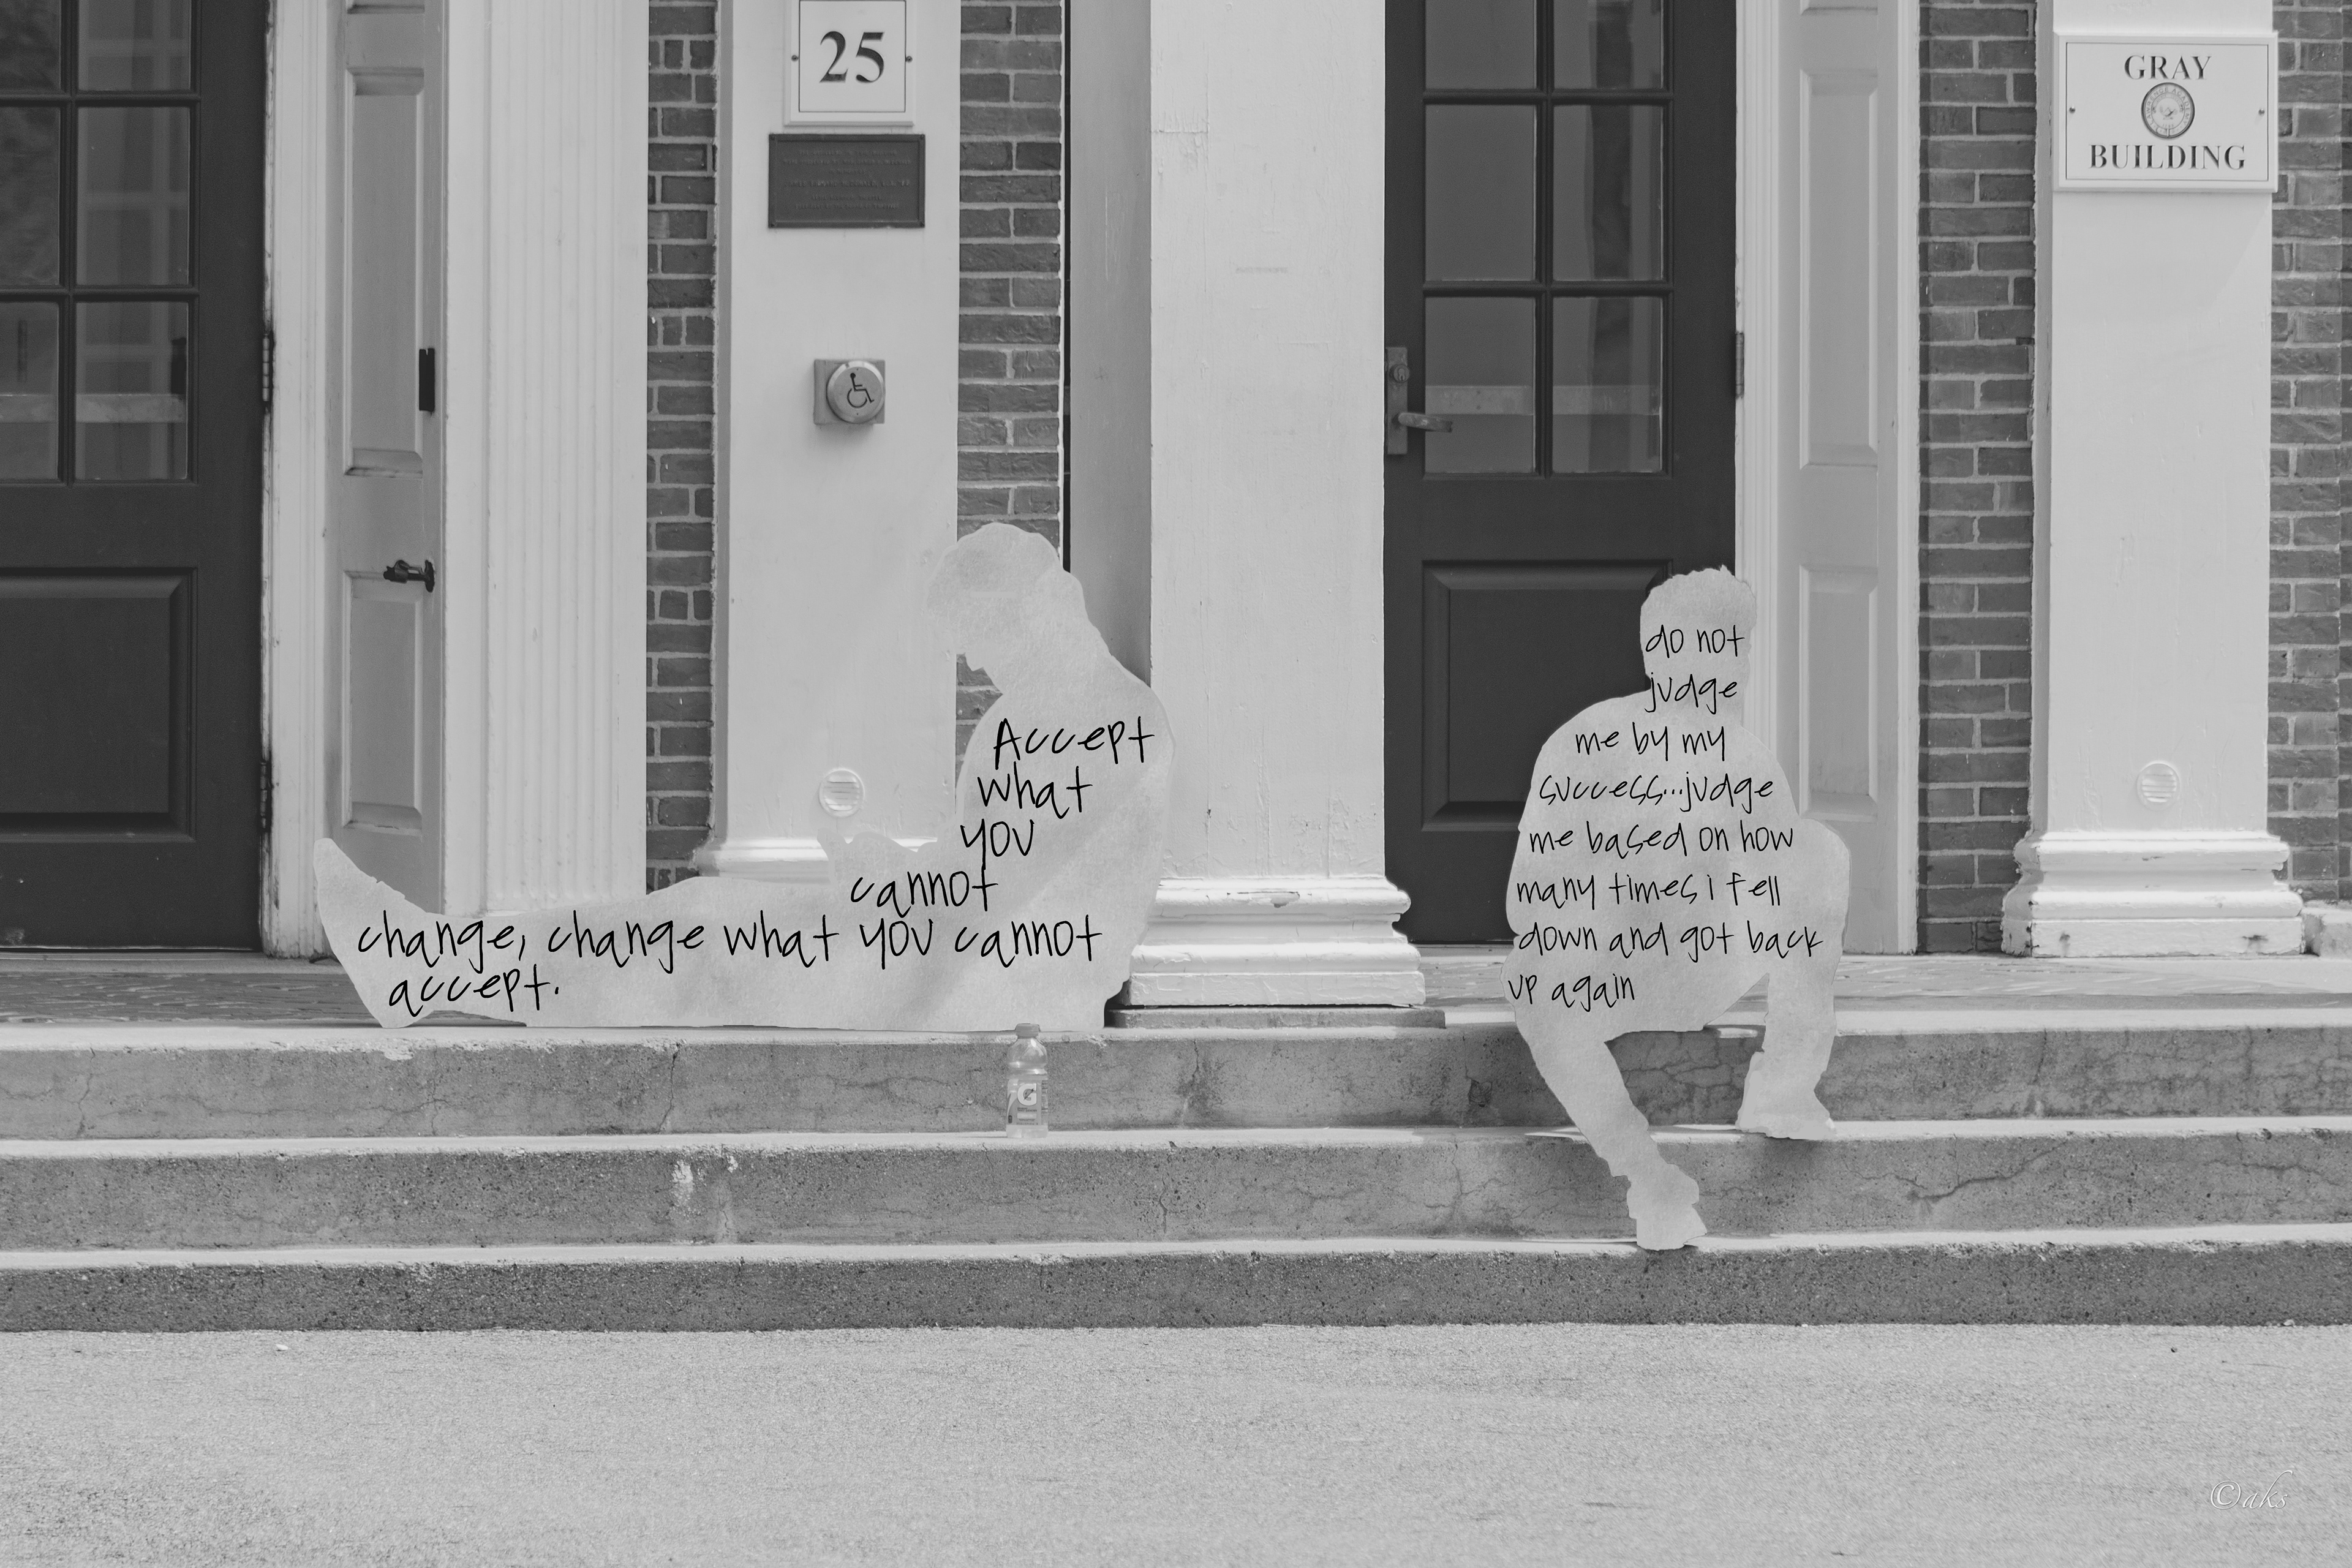 25
GRAY
BUILDING
Accept
what
you
cannot
change, change what you cannot
accept.
do not
judge
me by my
success...judge
me based on how
many times i fell
down and got back
up again
G
©aks